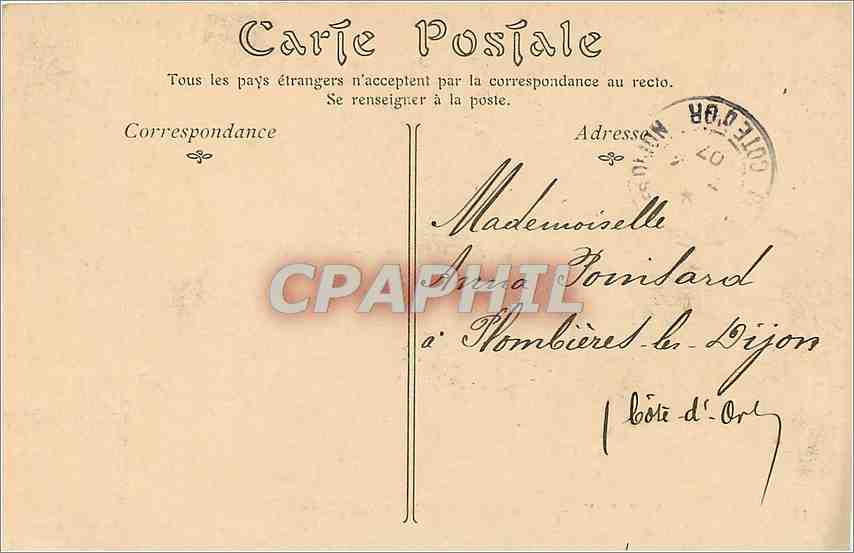 Carte Postale
Tous les pays étrangers n'acceptent par la correspondance au recto.
Se renseigner à la poste.
Correspondance
Adresse
COTE D'OR
07
Mademoiselle
CPAPHIL
Anna Poinsard
à Plombières-les-Dijon
(Côte-d'-Or)